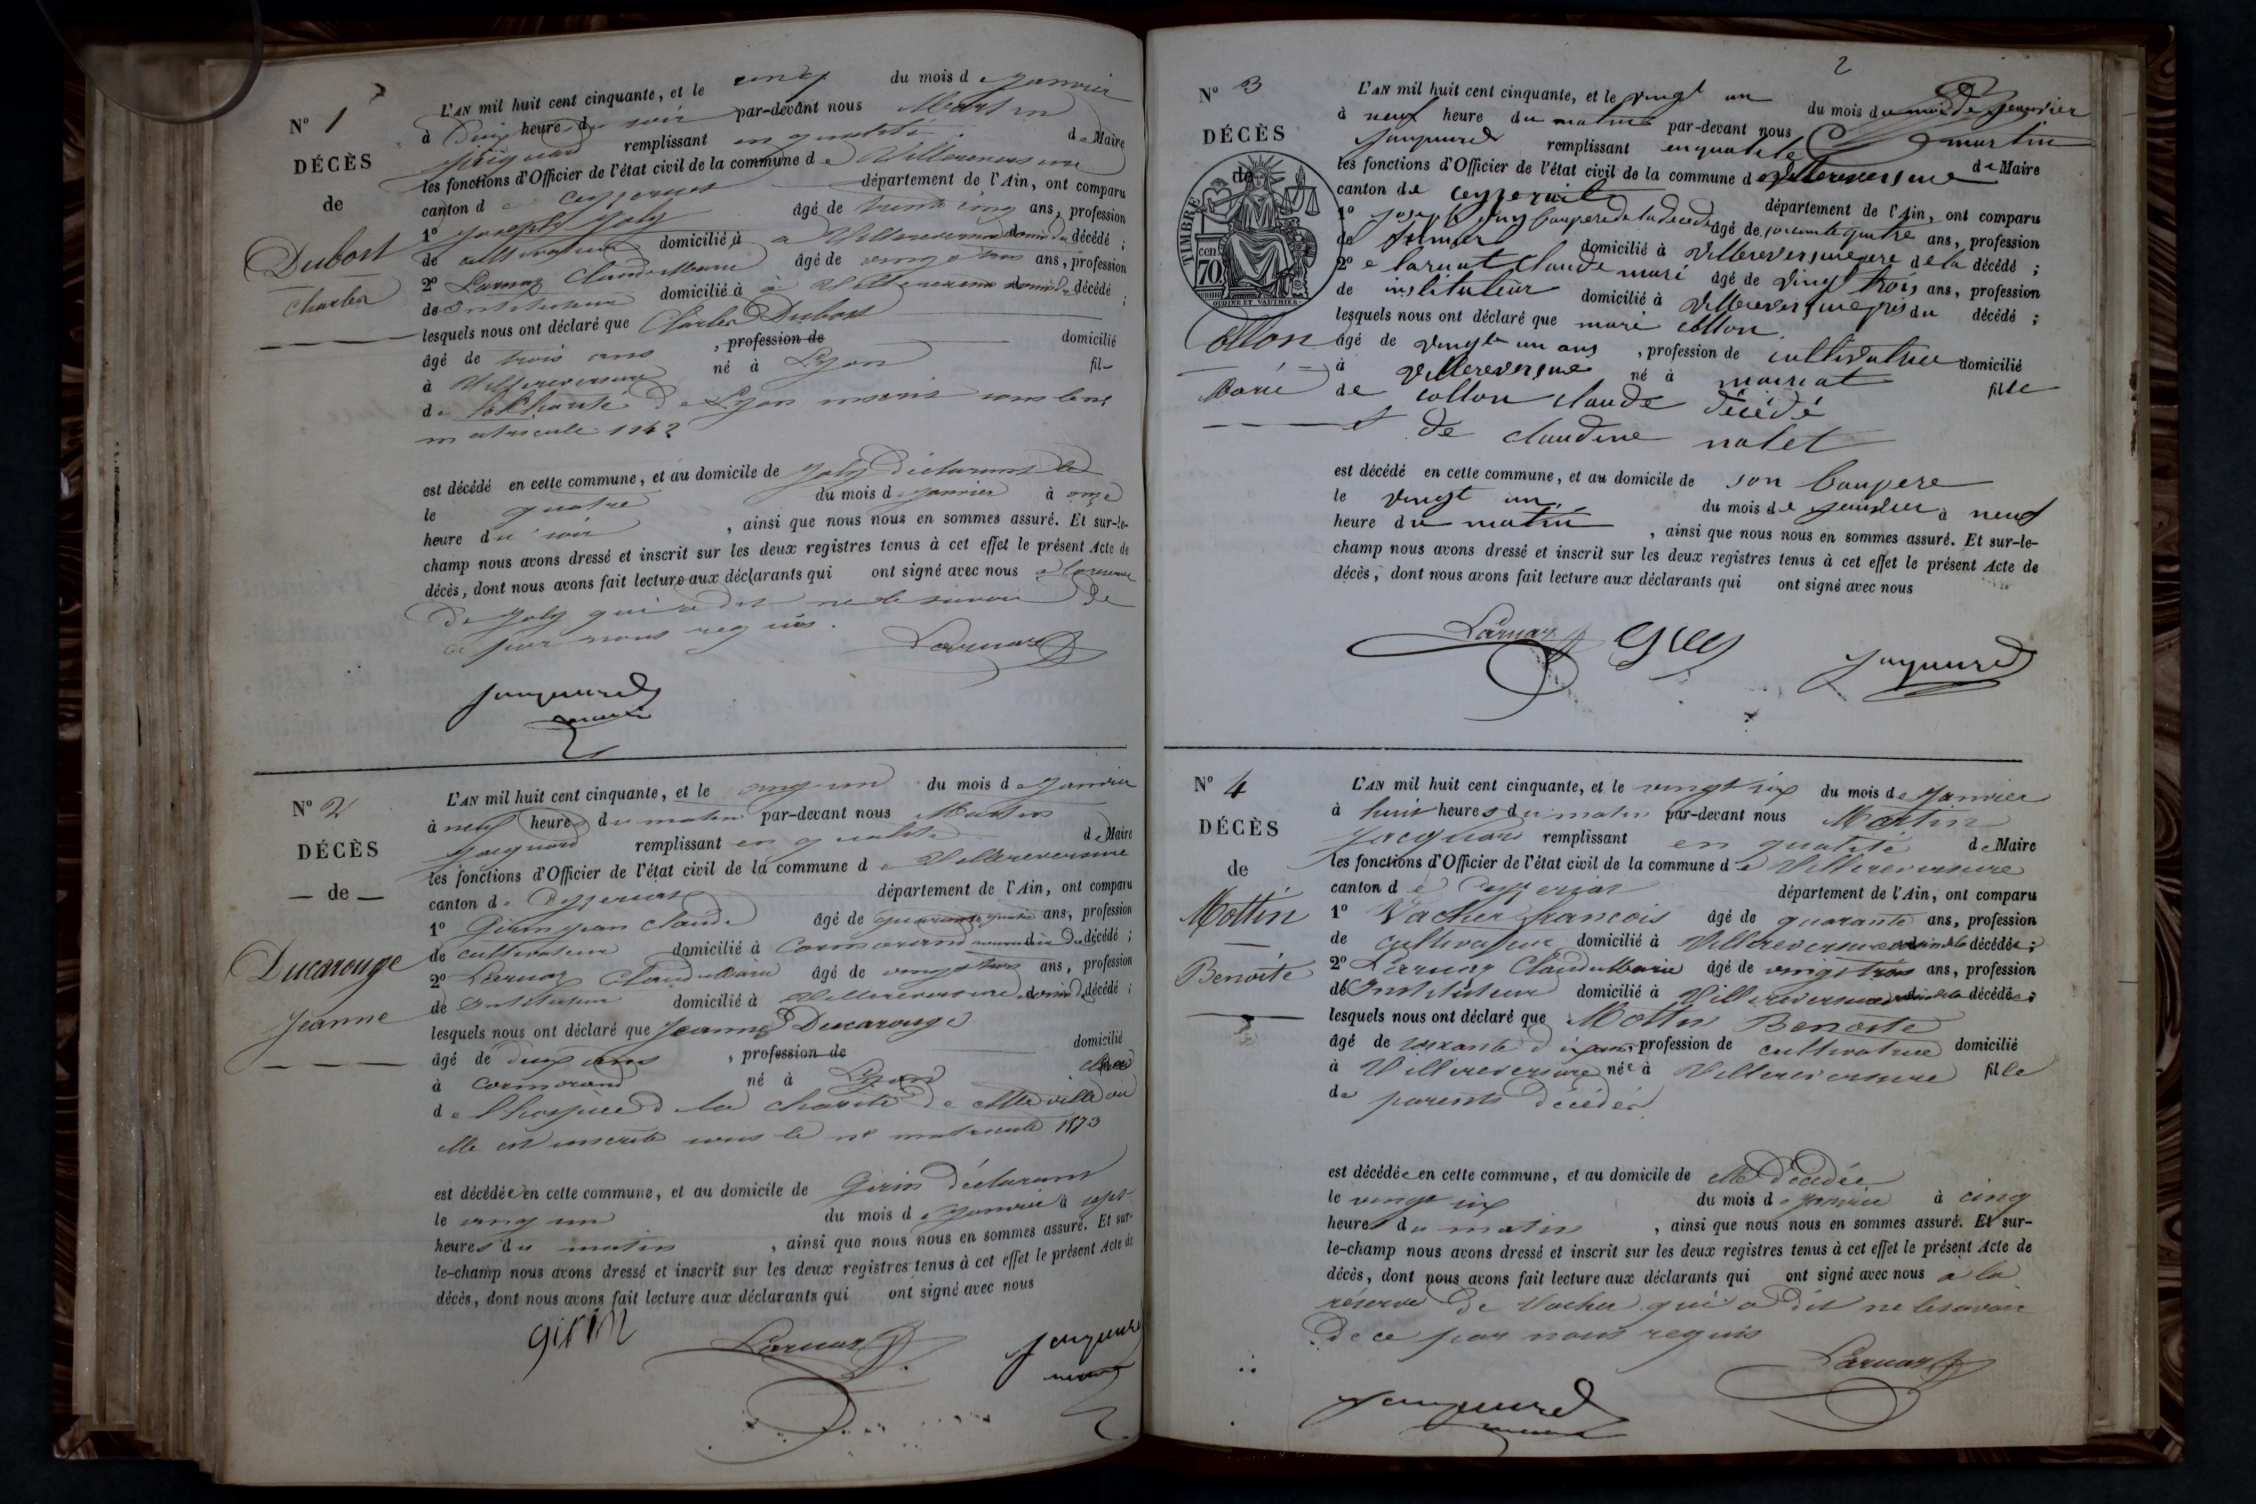 N° 1
DÉCÈS
de
Dubost
Charles
L'AN mil huit cent cinquante, et le cinq du mois de Janvier
à heure du soir par-devant nous Martin
Jacquard remplissant en qualité de Maire
les fonctions d'Officier de l'état civil de la commune de Villereversure
canton de Ceyzeriat département de l'Ain, ont comparu
1° Joseph Joly âgé de trente cinq ans, profession
de cultivateur domicilié à a Villereversure décédé ;
2° Larnaz Claude Marie âgé de vingt trois ans, profession
de Instituteur domicilié à à Villereversure décédé ;
lesquels nous ont déclaré que Charles Dubost
âgé de trois ans , profession de domicilié
à Villereversure né à Lyon fil
de la Charité de Lyon inscrit sous le n°
matricule 1142
est décédé en cette commune, et au domicile de Joly déclarant
le quatre du mois de Janvier à onze
heure du soir , ainsi que nous nous en sommes assuré. Et sur-le-
champ nous avons dressé et inscrit sur les deux registres tenus à cet effet le présent Acte de
décès, dont nous avons fait lecture aux déclarants qui ont signé avec nous
de Joly qui a dit ne le savoir de
ce par nous requis.
Larnaz
Jacquard
maire
N° 2
DÉCÈS
— de —
Ducarouge
Jeanne
L'AN mil huit cent cinquante, et le vingt un du mois de Janvier
à neuf heures du matin par-devant nous Martin
Jacquard remplissant en qualité de Maire
les fonctions d'Officier de l'état civil de la commune de Villereversure
canton de Ceyzeriat département de l'Ain, ont comparu
1° Girin jean claude âgé de quarante quatre ans, profession
de cultivateur domicilié à Cormorand décédé ;
2° Larnaz Claude Marie âgé de vingt trois ans, profession
de Instituteur domicilié à Villereversure décédé ;
lesquels nous ont déclaré que Jeanne Ducarouge
âgé de deux ans , profession de domicilié
à Cormorand né à Lyon
de l'hospice de la charité de cette ville où
elle est inscrite sous le n° matricule 1873
est décédée en cette commune, et au domicile de Girin déclarant
le vingt un du mois de Janvier à sept
heures du matin , ainsi que nous nous en sommes assuré. Et sur-
le-champ nous avons dressé et inscrit sur les deux registres tenus à cet effet le présent Acte de
décès, dont nous avons fait lecture aux déclarants qui ont signé avec nous
girin
Larnaz
Jacquard
2
N° 3
DÉCÈS
de
TIMBRE
cen
70
Collon
Marie
L'AN mil huit cent cinquante, et le vingt un du mois du mois de Janvier
à neuf heure du matin par-devant nous martin
Jacquard remplissant en qualité de Maire
les fonctions d'Officier de l'état civil de la commune de villereversure
canton de ceyzeriat département de l'Ain, ont comparu
1° joseph guy beaupere de la décédé âgé de soixante quatre ans, profession
de domicilié à villereversure de la décédé ;
2° e larnat claude marie âgé de vingt trois ans, profession
de instituteur domicilié à villereversure près du décédé ;
lesquels nous ont déclaré que marie collon
âgé de vingt un ans , profession de cultivatrice domicilié
à villereversure né à mairiat fille
de collon claude décédé
et de claudine nallet
est décédé en cette commune, et au domicile de son beaupere
le vingt un du mois de janvier à neuf
heure du matin , ainsi que nous nous en sommes assuré. Et sur-le-
champ nous avons dressé et inscrit sur les deux registres tenus à cet effet le présent Acte de
décès, dont nous avons fait lecture aux déclarants qui ont signé avec nous
Larnaz
Guy
Jacquard
N° 4
DÉCÈS
de
Mottin
Benoite
L'AN mil huit cent cinquante, et le vingt six du mois de Janvier
à huit heures du matin par-devant nous Martin
Jacquard remplissant en qualité de Maire
les fonctions d'Officier de l'état civil de la commune de Villereversure
canton de Ceyzeriat département de l'Ain, ont comparu
1° Vacher francois âgé de quarante ans, profession
de cultivateur domicilié à Villereversure décédée ;
2° Larnaz Claude Marie âgé de vingt trois ans, profession
de Instituteur domicilié à Villereversure décédée ;
lesquels nous ont déclaré que Mottin Benoite
âgé de soixante dix ans, profession de cultivatrice domicilié
à Villereversure née à Villereversure fille
de parents décédés
est décédée en cette commune, et au domicile de elle décédée
le vingt six du mois de Janvier à cinq
heures du matin , ainsi que nous nous en sommes assuré. Et sur-
le-champ nous avons dressé et inscrit sur les deux registres tenus à cet effet le présent Acte de
décès, dont nous avons fait lecture aux déclarants qui ont signé avec nous a la
réserve de Vacher qui a dit ne le savoir
de ce par nous requis
Larnaz
Jacquard